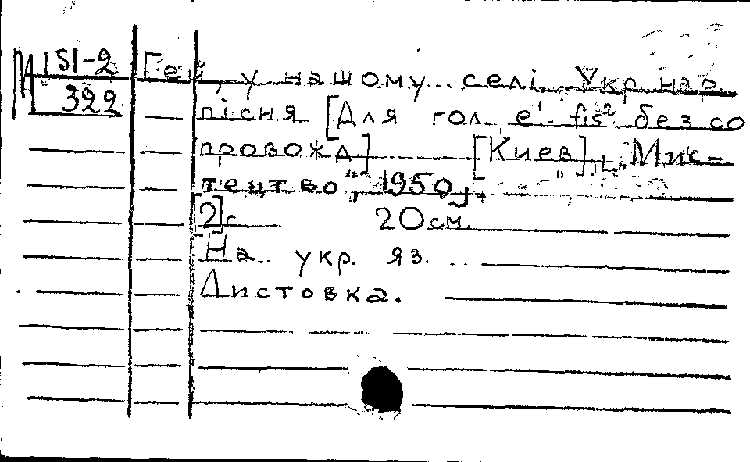 М 151-2
322
Гей, у нашому селі. Укр. нар.
пісня [Для гол. e¹-fis² без со
провожд] [Киев], „Мис-
тецтво", 1950.
[2]с. 20 см.
На укр. яз.
Листовка.